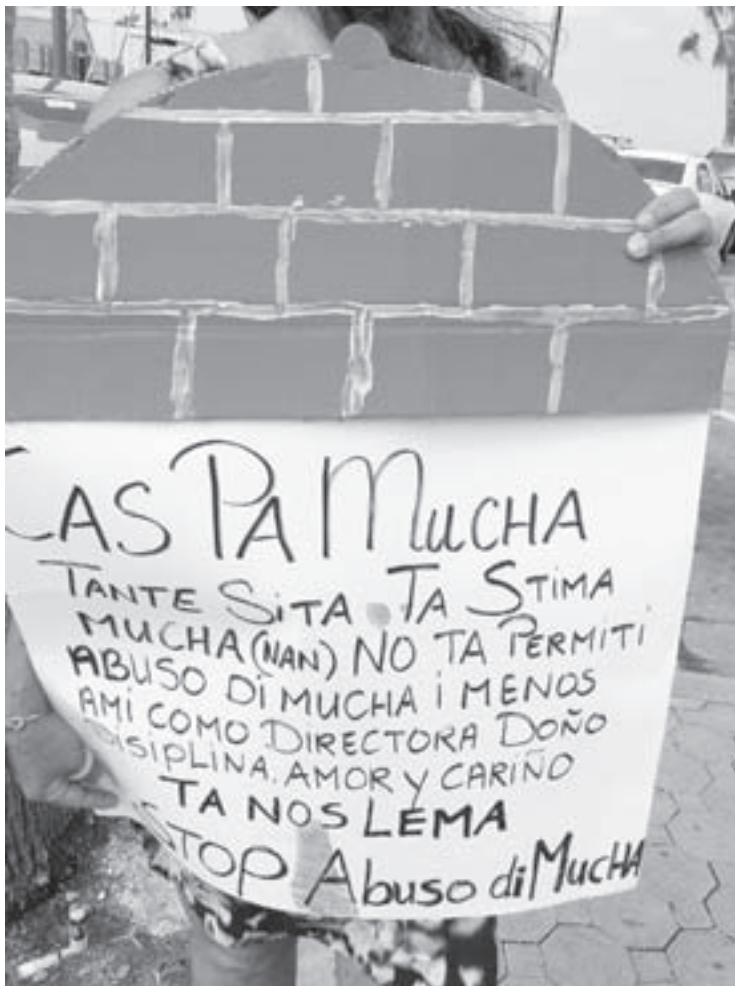 CAS PA MUCHA
TANTE SITA. TA STIMA
MUCHA(NAN) NO TA PERMITI
ABUSO DI MUCHA I MENOS
AMI COMO DIRECTORA DOÑO
DISIPLINA. AMOR Y CARIÑO
TA NOS LEMA
STOP Abuso di MUCHA